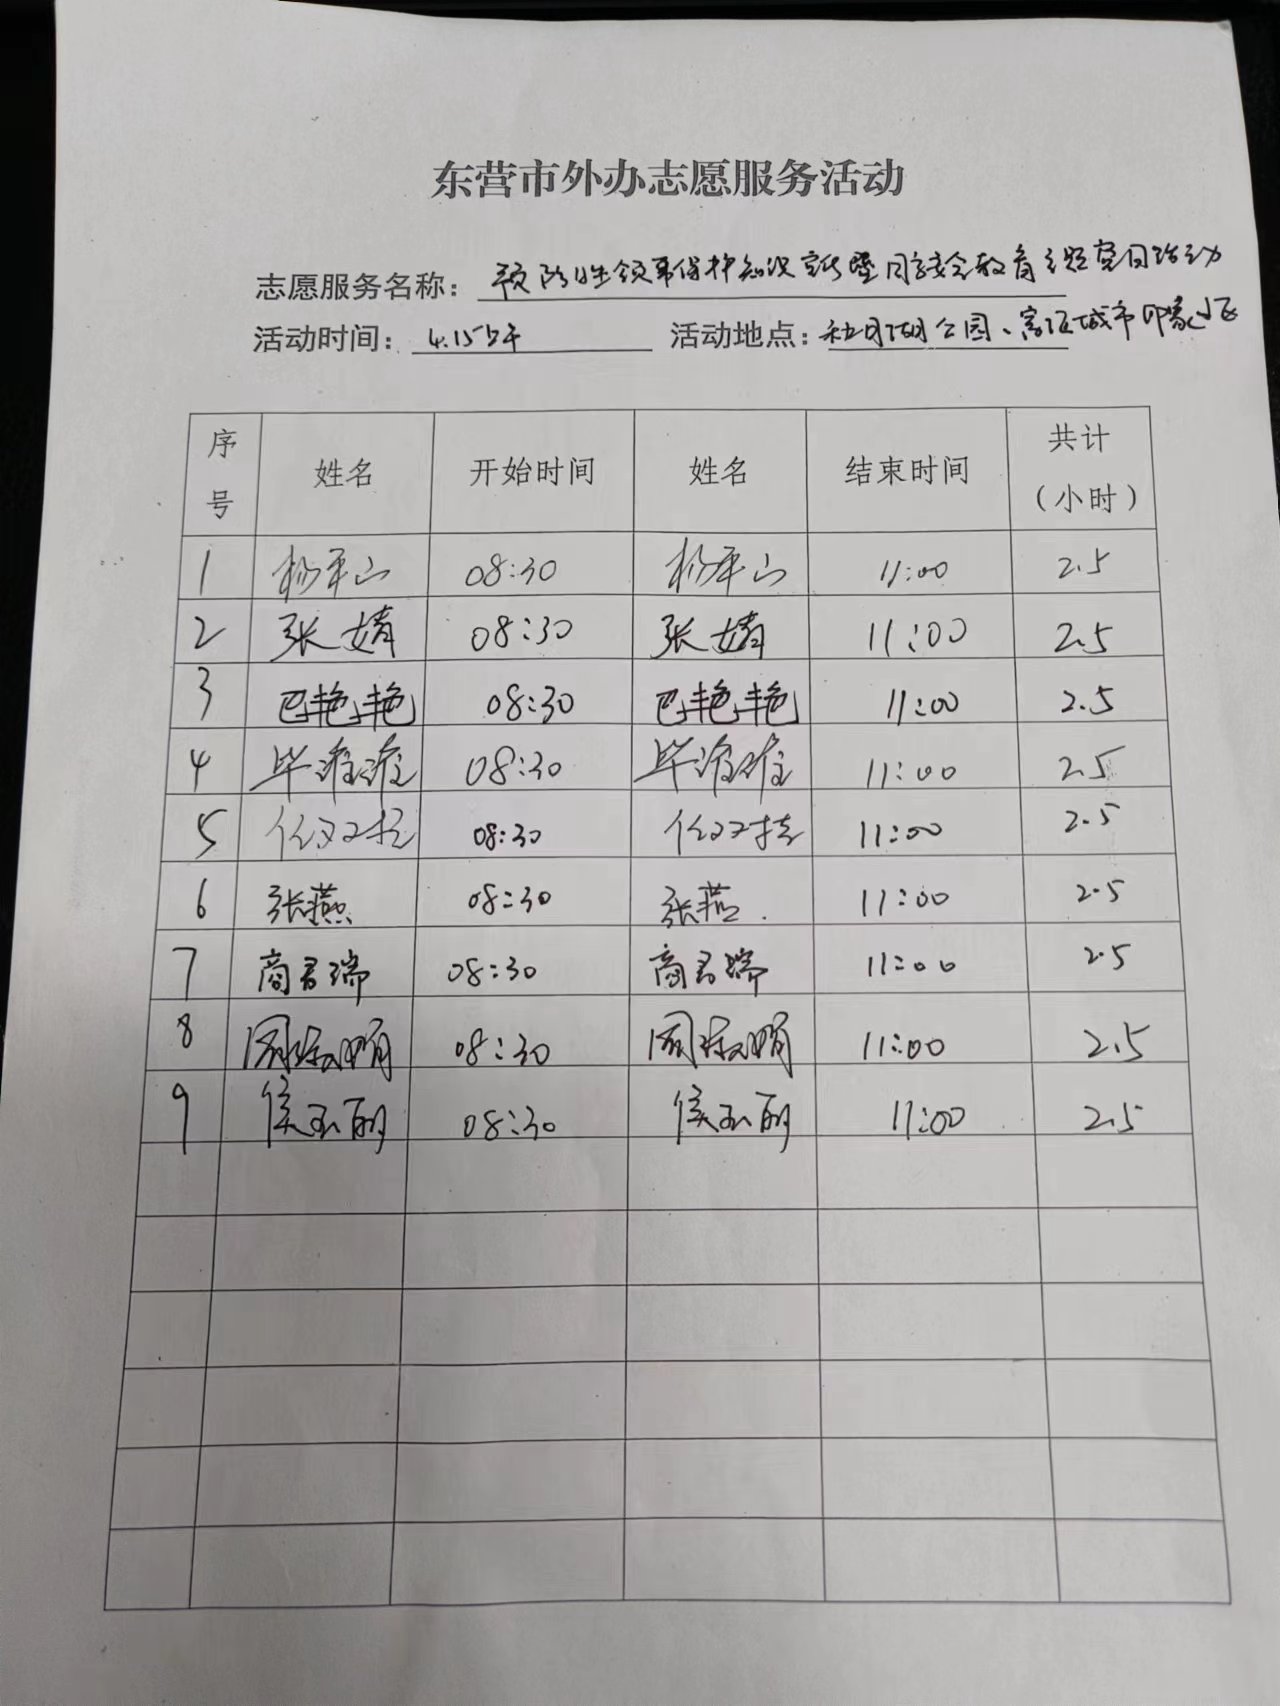 东营市外办志愿服务活动
志愿服务名称：预防性领事保护知识宣传暨国安教育主题党日活动
活动时间：4.15上午 活动地点：公园、城市印象
序号 姓名 开始时间 姓名 结束时间 共计（小时）
1 杨平山 08:30 杨平山 11:00 2.5
2 张婧 08:30 张婧 11:00 2.5
3 巴艳艳 08:30 巴艳艳 11:00 2.5
4 毕淮淮 08:30 毕淮淮 11:00 2.5
5 08:30 11:00 2.5
6 张燕 08:30 张燕 11:00 2.5
7 商君瑞 08:30 商君瑞 11:00 2.5
8 08:30 11:00 2.5
9 侯玉丽 08:30 侯玉丽 11:00 2.5